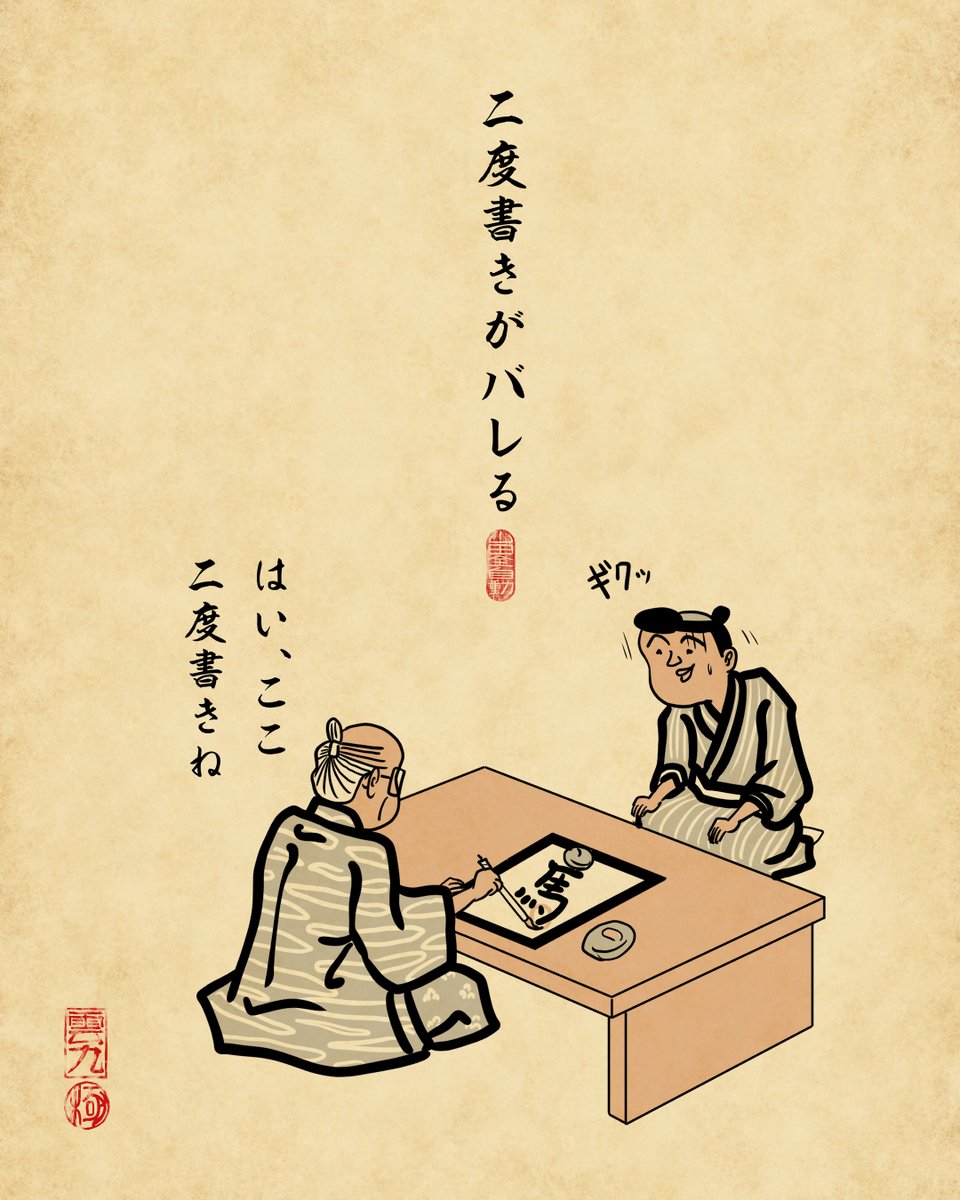 二度書きがバレる
ギクッ
はい、ここ
二度書きね
馬